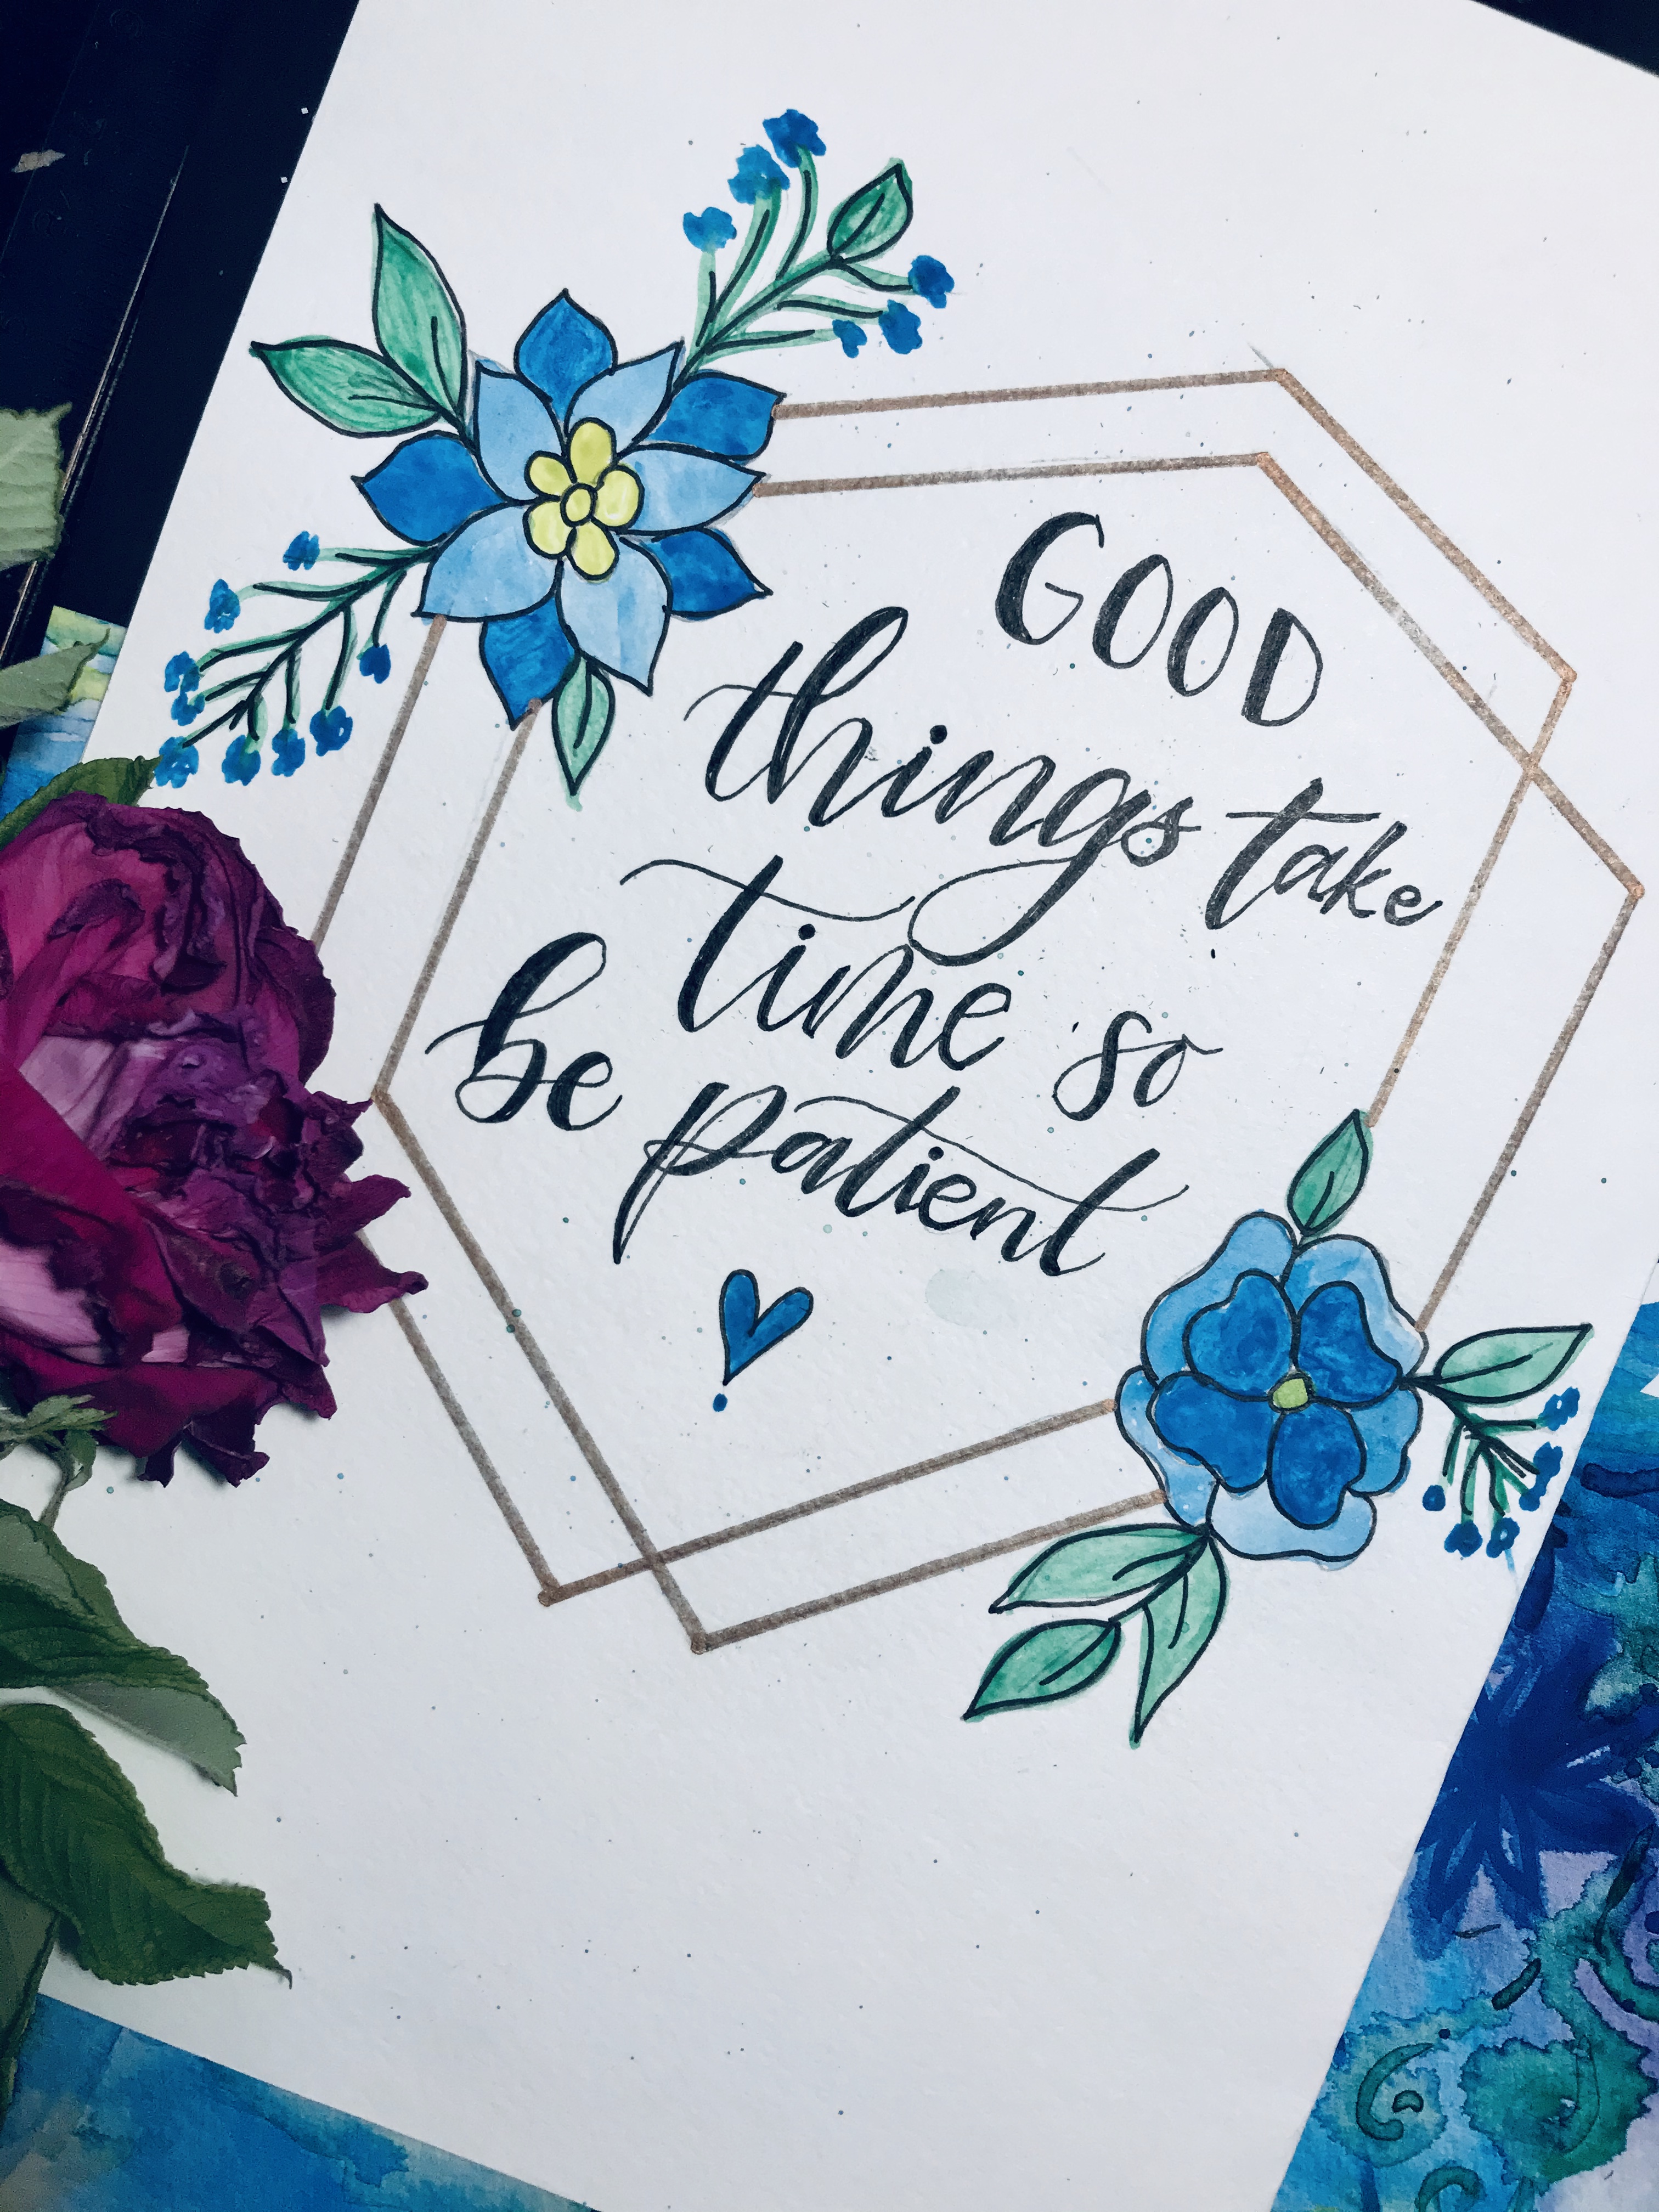 GOOD
things take
time so
be patient